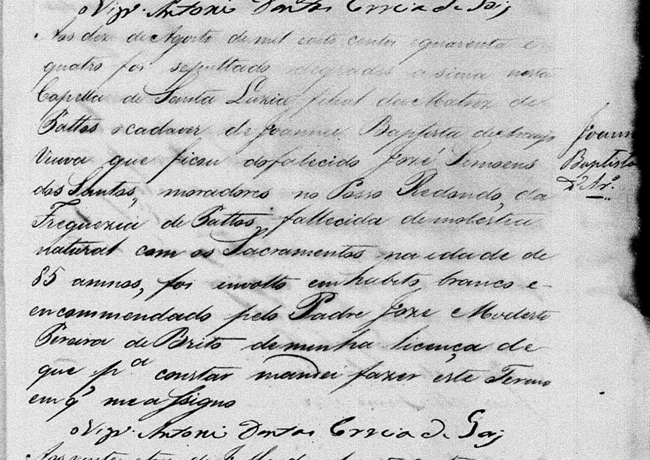 o Vigrº Antonio Dantas Correia de Gois
Aos dez de Agosto de mil oito centos e quarenta e
quatro foi sepultado degrades asima nesta
Capella de Santa Luzia filial da Matriz de
Pattos o cadaver de Joanna Baptista de Araujo
Viuva que ficou do falecido José Simoens
dos Santos, moradores no Posso Redondo da
Freguezia de Pattos, fallecida de molestia
natural com os Sacramentos na idade de
85 annos, foi involto em habito branco e
encommendado pelo Padre José Modesto
Pereira de Brito de minha licença de
que pª constar mandei fazer este Termo
em q' me assigno
o Vigrº Antonio Dantas Correia de Gois
Joanna
Baptista
d'Arº